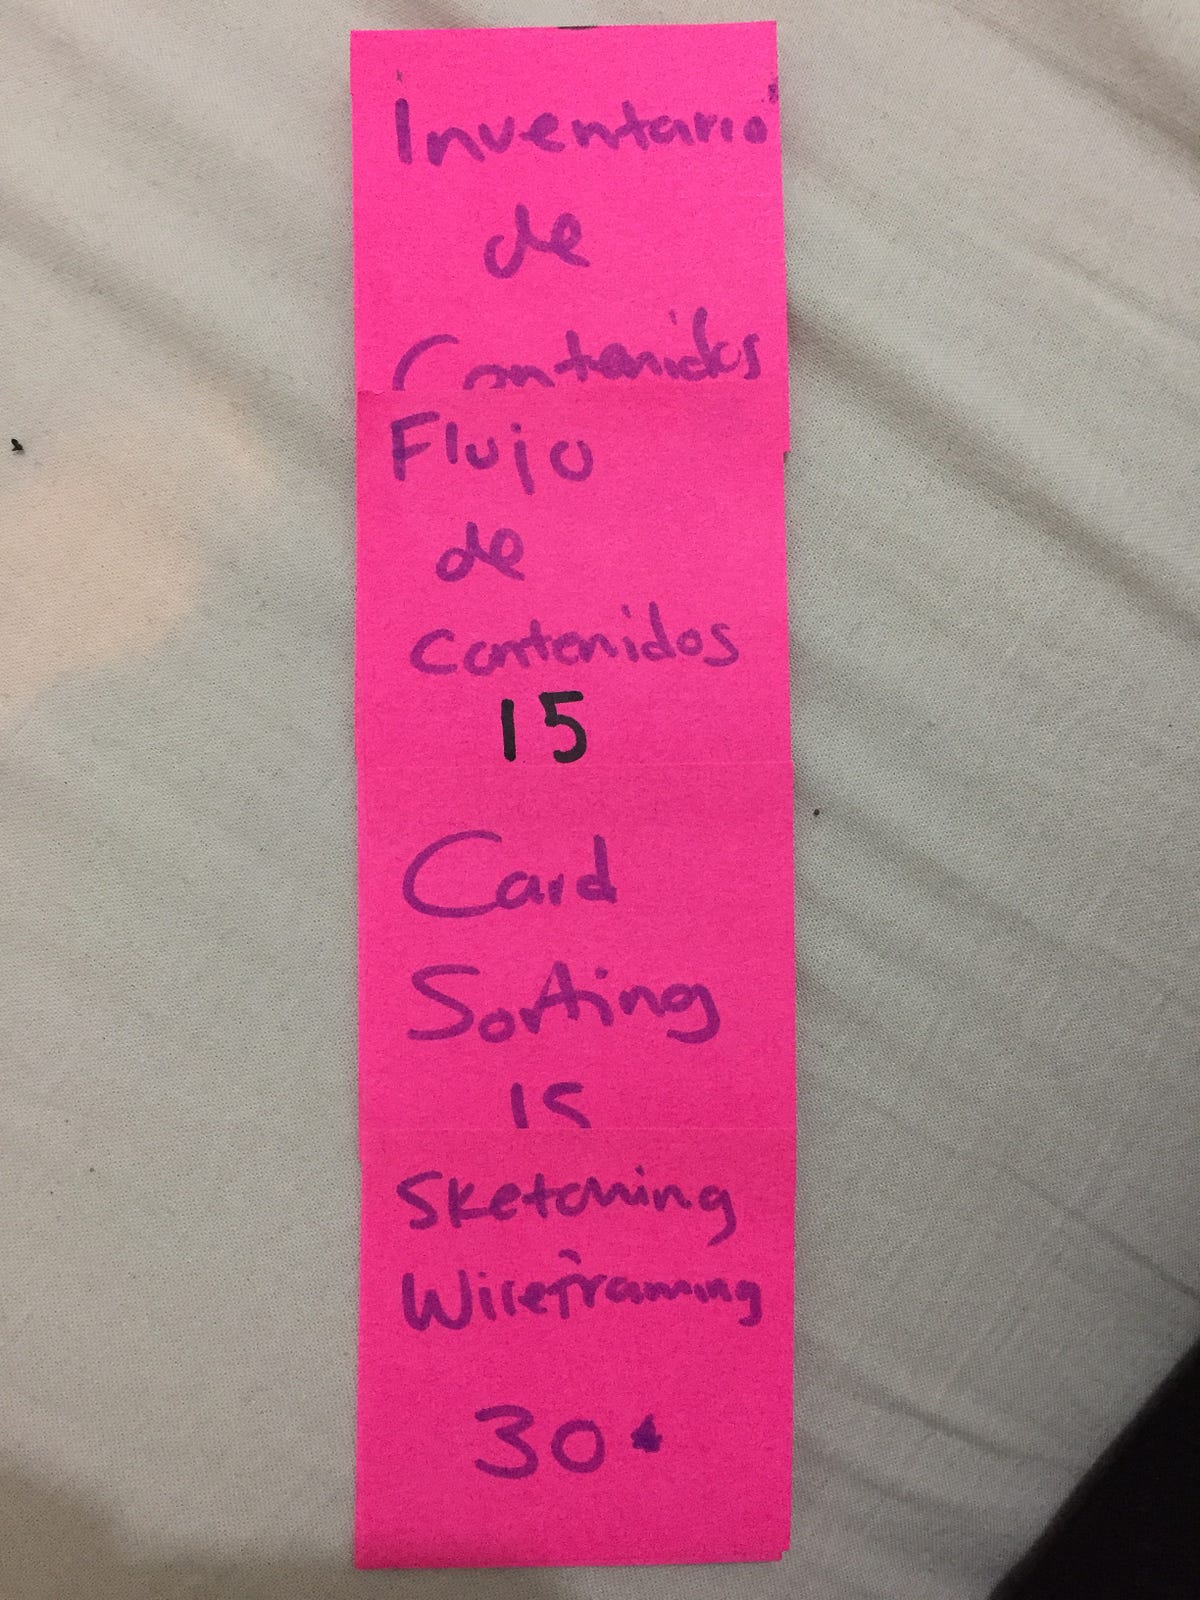 Inventario
de
Contenidos
Flujo
de
contenidos
15
Card
Sorting
15
Sketching
Wireframing
30